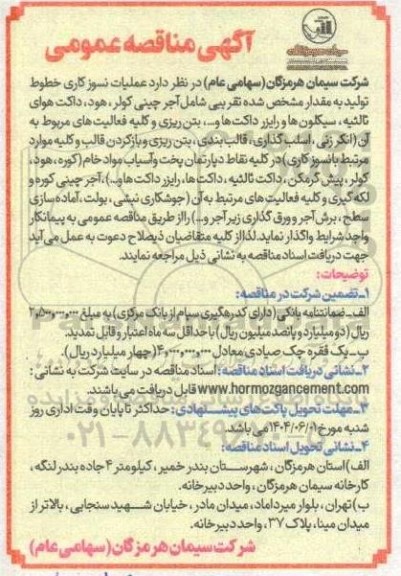 آگهی مناقصه عمومی
شرکت سیمان هرمزگان (سهامی عام) در نظر دارد عملیات نسوز کاری خطوط
تولید به مقدار مشخص شده تقریبی شامل آجر چینی کولر، هود، داکت هوای
ثالثیه، سیکلون ها و رایزر داکت ها و...، بتن ریزی و کلیه فعالیت های مربوط به
آن (انکر زنی، اسلب گذاری، قالب بندی، بتن ریزی و باز کردن قالب و کلیه موارد
مرتبط با نسوز کاری) در کلیه نقاط دپارتمان پخت و آسیاب مواد خام (کوره، هود،
کولر، پیش گرمکن، داکت ثالثیه، داکت ها، رایزر داکت ها و...)، آجر چینی کوره و
لکه گیری و کلیه فعالیت های مرتبط به آن (جوشکاری نبشی، بولت، آماده سازی
سطح، برش آجر و ورق گذاری زیر آجر و...) را از طریق مناقصه عمومی به پیمانکار
واجد شرایط واگذار نماید. لذا از کلیه متقاضیان ذیصلاح دعوت به عمل می آید
جهت دریافت اسناد مناقصه به نشانی ذیل مراجعه نمایند.
توضیحات:
۱ـ تضمین شرکت در مناقصه:
الف ـ ضمانتنامه بانکی (دارای کد رهگیری سپام از بانک مرکزی) به مبلغ ۲,۵۰۰,۰۰۰,۰۰۰
ریال (دو میلیارد و پانصد میلیون ریال) با حداقل سه ماه اعتبار و قابل تمدید.
ب ـ یک فقره چک صیادی معادل ۴,۰۰۰,۰۰۰,۰۰۰ (چهار میلیارد ریال).
۲ـ نشانی دریافت اسناد مناقصه: اسناد مناقصه در سایت شرکت به نشانی:
www.hormozgancement.com قابل دریافت می باشند.
۳ـ مهلت تحویل پاکت های پیشنهادی: حداکثر تا پایان وقت اداری روز
شنبه مورخ ۱۴۰۴/۰۶/۰۱ می باشد.
۴ـ نشانی تحویل اسناد مناقصه:
الف) استان هرمزگان، شهرستان بندر خمیر، کیلومتر ۴ جاده بندر لنگه،
کارخانه سیمان هرمزگان، واحد دبیرخانه.
ب) تهران، بلوار میرداماد، میدان مادر، خیابان شهید سنجابی، بالاتر از
میدان مینا، پلاک ۳۷، واحد دبیرخانه.
شرکت سیمان هرمزگان (سهامی عام)